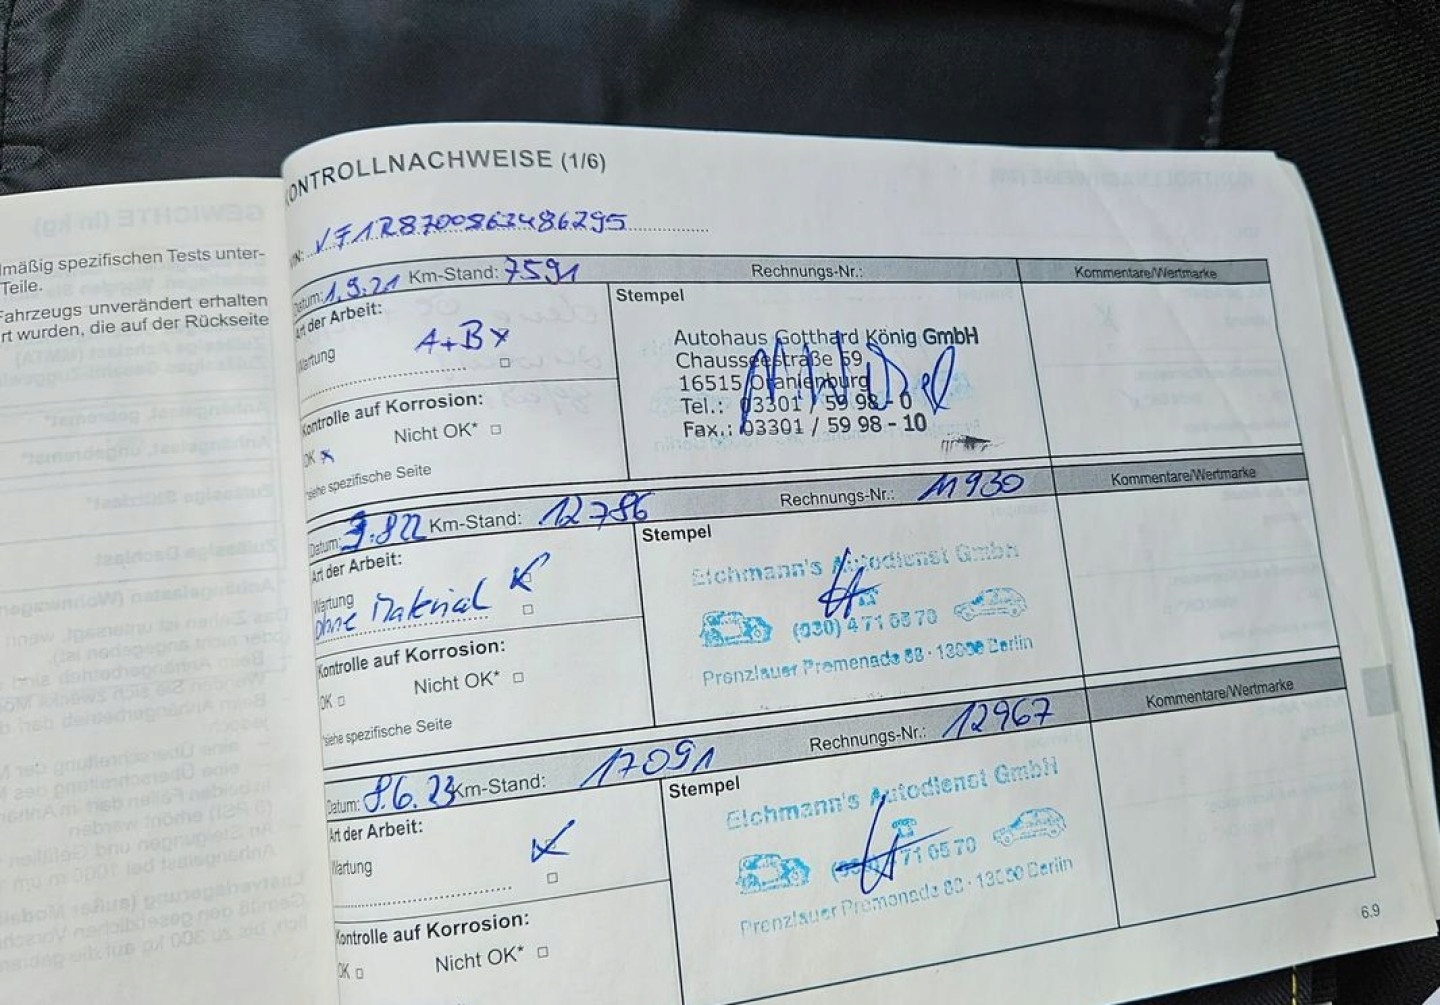 lmäßig spezifischen Tests unter-
Teile.
Fahrzeugs unverändert erhalten
rt wurden, die auf der Rückseite
GEWICHTE (in kg)
KONTROLLNACHWEISE (1/6)
VF1R8700863486295
Datum: 1.9.21 Km-Stand: 7591 Rechnungs-Nr.: Kommentare/Wertmarke
Art der Arbeit: Stempel
Wartung A+B x
Autohaus Gotthard König GmbH
Chausseestraße 59
16515 Oranienburg
Tel.: 03301 / 59 98 - 0
Fax.: 03301 / 59 98 - 10
Kontrolle auf Korrosion:
OK x Nicht OK* □
*siehe spezifische Seite
Datum: 9.822 Km-Stand: 12786 Rechnungs-Nr.: 11930 Kommentare/Wertmarke
Art der Arbeit: Stempel
Wartung
ohne Material
Eichmann's Autodienst GmbH
(030) 471 05 70
Prenzlauer Promenade 88 · 13089 Berlin
Kontrolle auf Korrosion:
OK □ Nicht OK* □
*siehe spezifische Seite
Datum: 8.6.23 Km-Stand: 17091 Rechnungs-Nr.: 12967 Kommentare/Wertmarke
Art der Arbeit: Stempel
Wartung
Eichmann's Autodienst GmbH
471 05 70
Prenzlauer Promenade 88 · 13089 Berlin
Kontrolle auf Korrosion:
OK □ Nicht OK* □
6.9